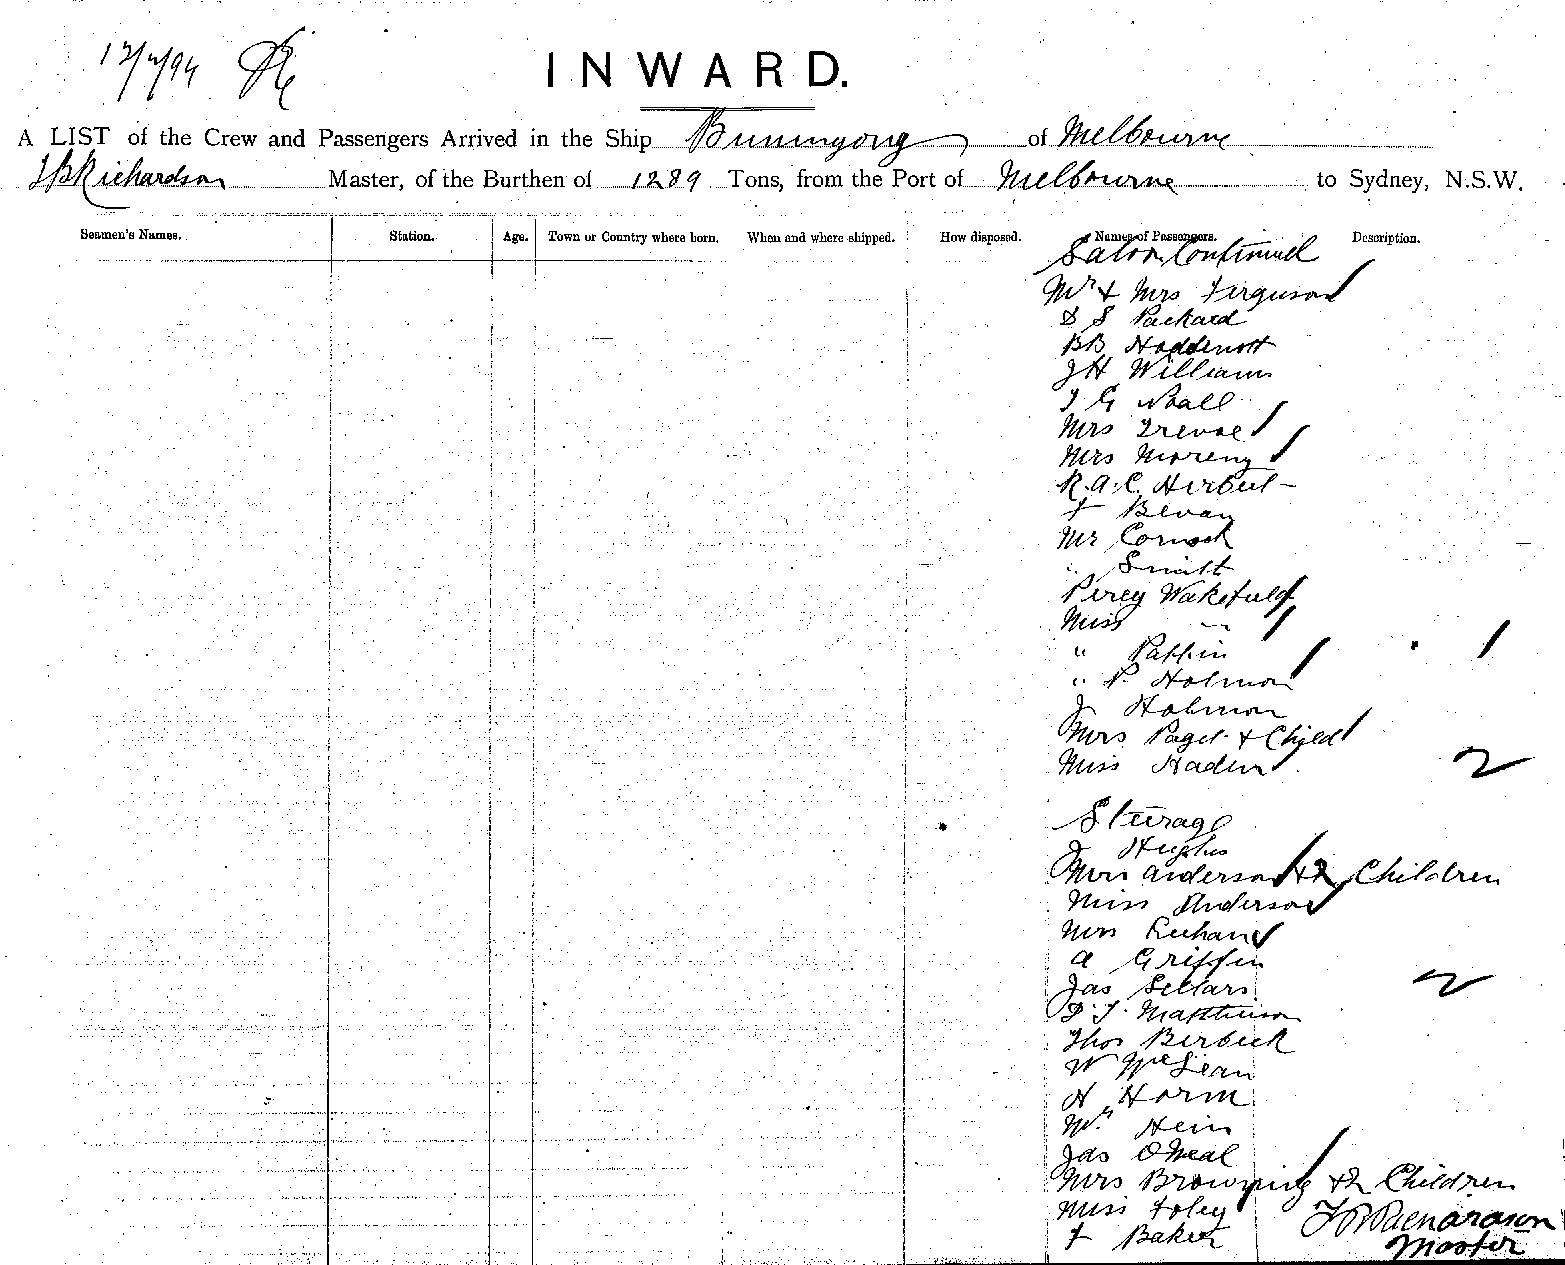 12/4/94
INWARD.
A LIST of the Crew and Passengers Arrived in the Ship Buninyong of Melbourne
Richardson Master, of the Burthen of 1289 Tons, from the Port of Melbourne to Sydney, N.S.W.
Seamen's Names. Station. Age. Town or Country where born. When and where shipped. How disposed. Names of Passengers. Description.
Saloon Continued
Mr & Mrs Ferguson
D S Packard
BB Hoddinott
JH Williams
J G
Mrs
Mrs
R.A.C. Herbert
F Bevan
Mr Cornock
" Smith
Percy Wakefield
Miss "
"
" P. Holman
J Holman
Mrs Paget & Child
Miss
Steerage
J Hughes
Mrs Anderson & 2 Children
Miss Anderson
Mrs
A Griffin
Jas Sellars
Thos Birbeck
W McLean
H
Mr Hein
Jas O'Neal
Mrs Browning & 2 Children
Miss Foley
F Baker
Richardson
Master